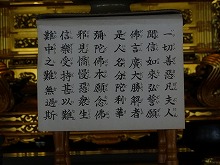 一切善悪凡夫人
聞信如来弘誓願
佛言廣大勝解者
是人名分陀利華
彌陀佛本願念佛
邪見憍慢惡衆生
信樂受持甚以難
難中之難無過斯